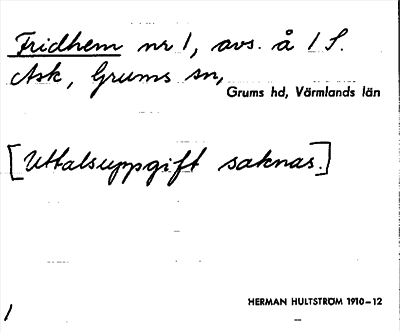 Fridhem nr 1, avs. å 1 S.
Ask, Grums sn,
Grums hd, Värmlands län
[Uttalsuppgift saknas.]
HERMAN HULTSTRÖM 1910–12
1